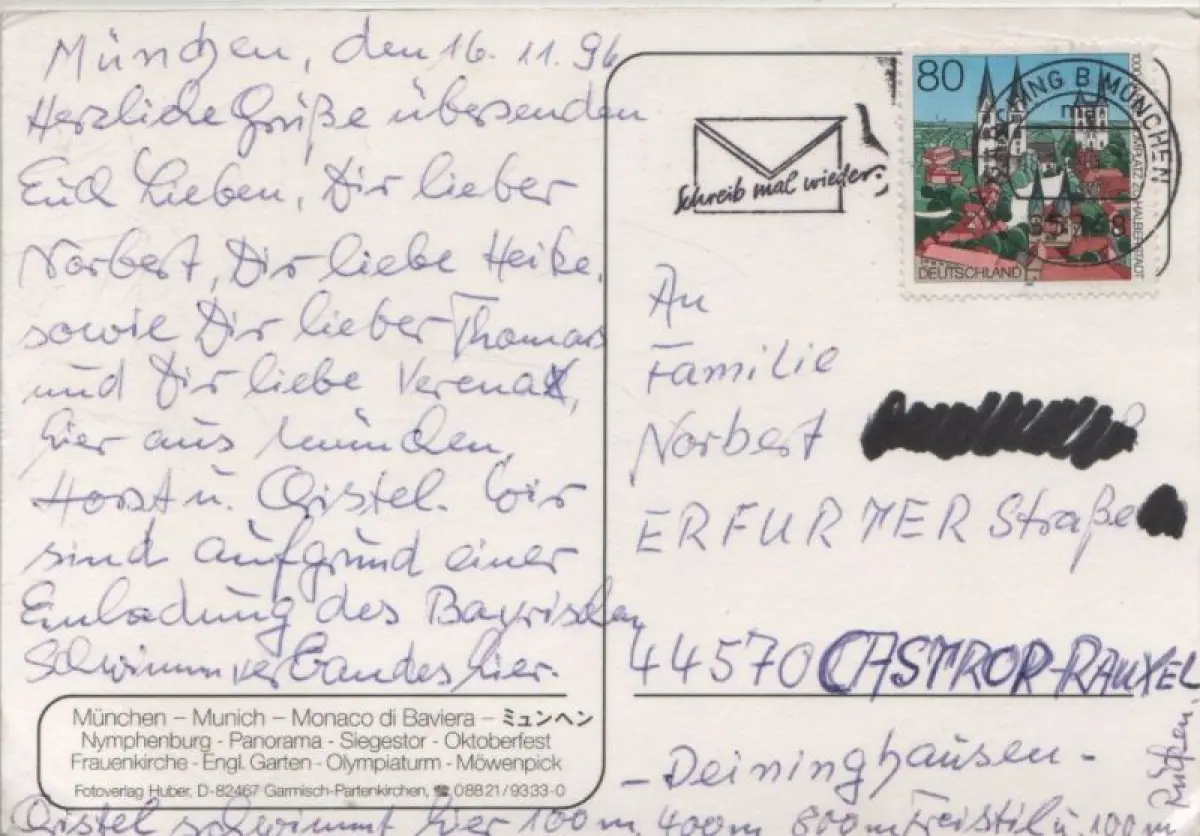 München, den 16.11.96
Herzliche Grüße übersenden
Euch Lieben, Dir lieber
Norbert, Dir liebe Heike,
sowie Dir lieber Thomas
und Dir liebe Verena,
hier aus München,
Horst u. Christel. Wir
sind aufgrund einer
Einladung des Bayrischen
Schwimmverbandes hier.
München – Munich – Monaco di Baviera – ミュンヘン
Nymphenburg - Panorama - Siegestor - Oktoberfest
Frauenkirche - Engl. Garten - Olympiaturm - Möwenpick
Fotoverlag Huber, D-82467 Garmisch-Partenkirchen, ☎ 08821/9333-0
Christel schwimmt hier 100 m, 400m 800m Freistil u. 100 m
Rücken.
Schreib mal wieder.
80
DEUTSCHLAND
HING B MÜNCHEN
An
Familie
Norbert
ERFURTER Straße
44570 CASTROP-RAUXEL
- Deininghausen -